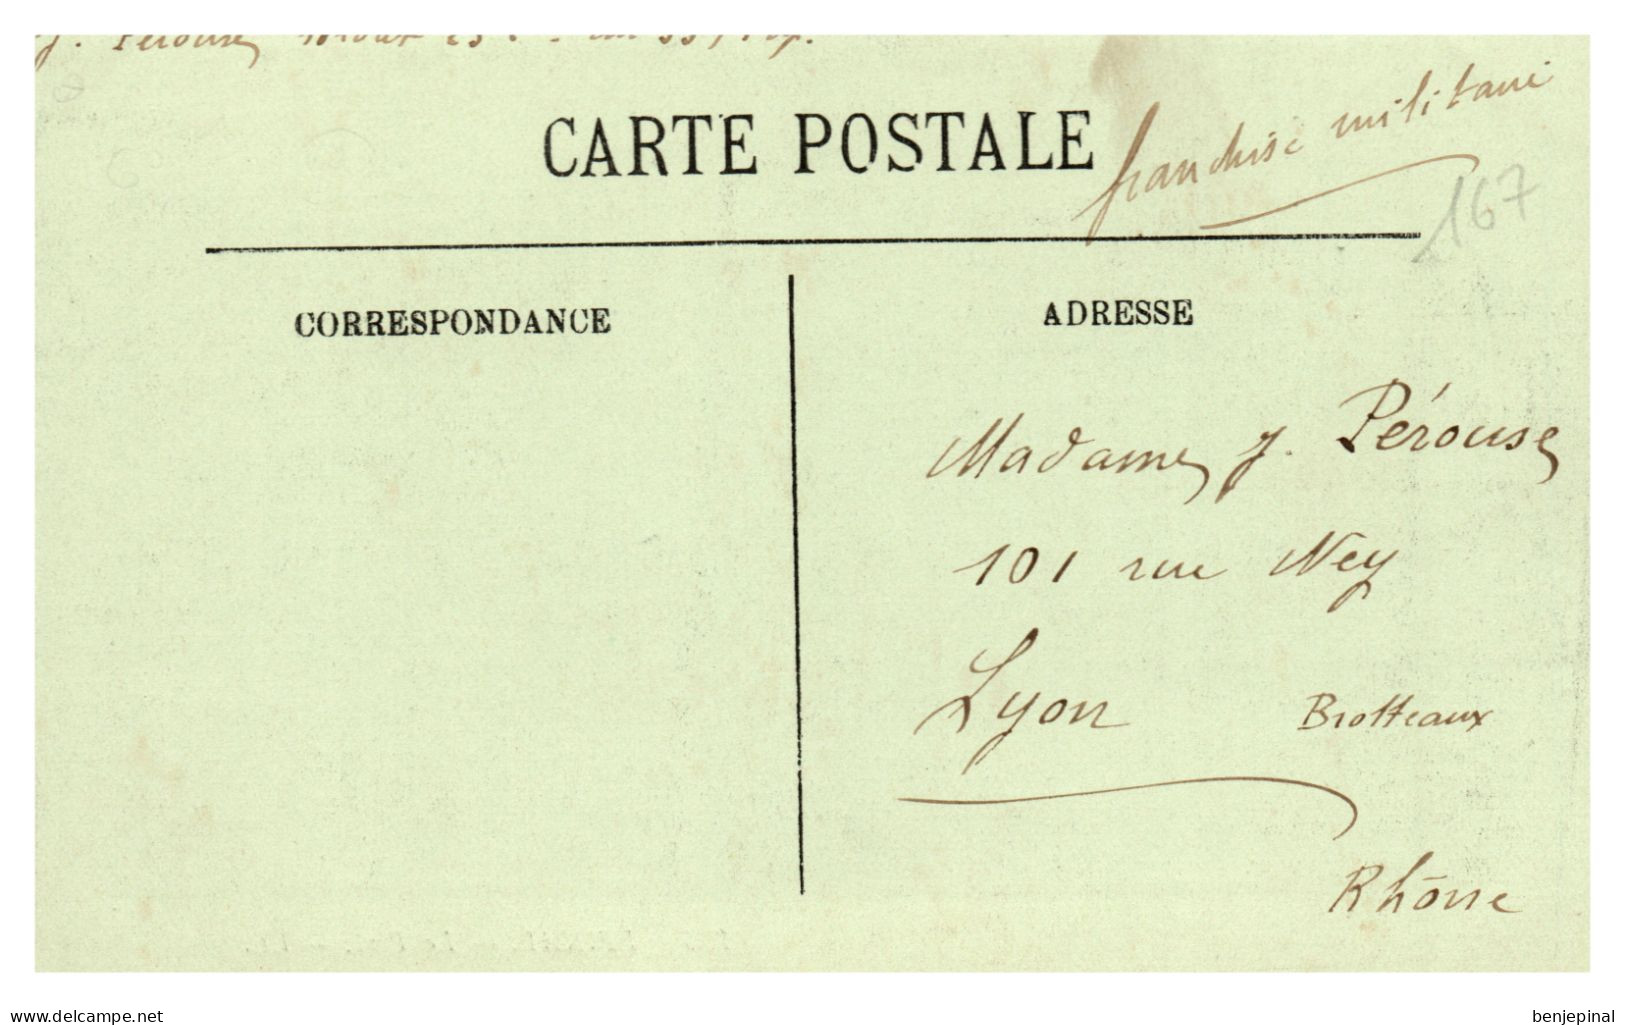 J. Pérouse
CARTE POSTALE
franchise militaire
167
CORRESPONDANCE
ADRESSE
Madame J. Pérouse
101 rue Ney
Lyon Brotteaux
Rhône
www.delcampe.net
benjepinal